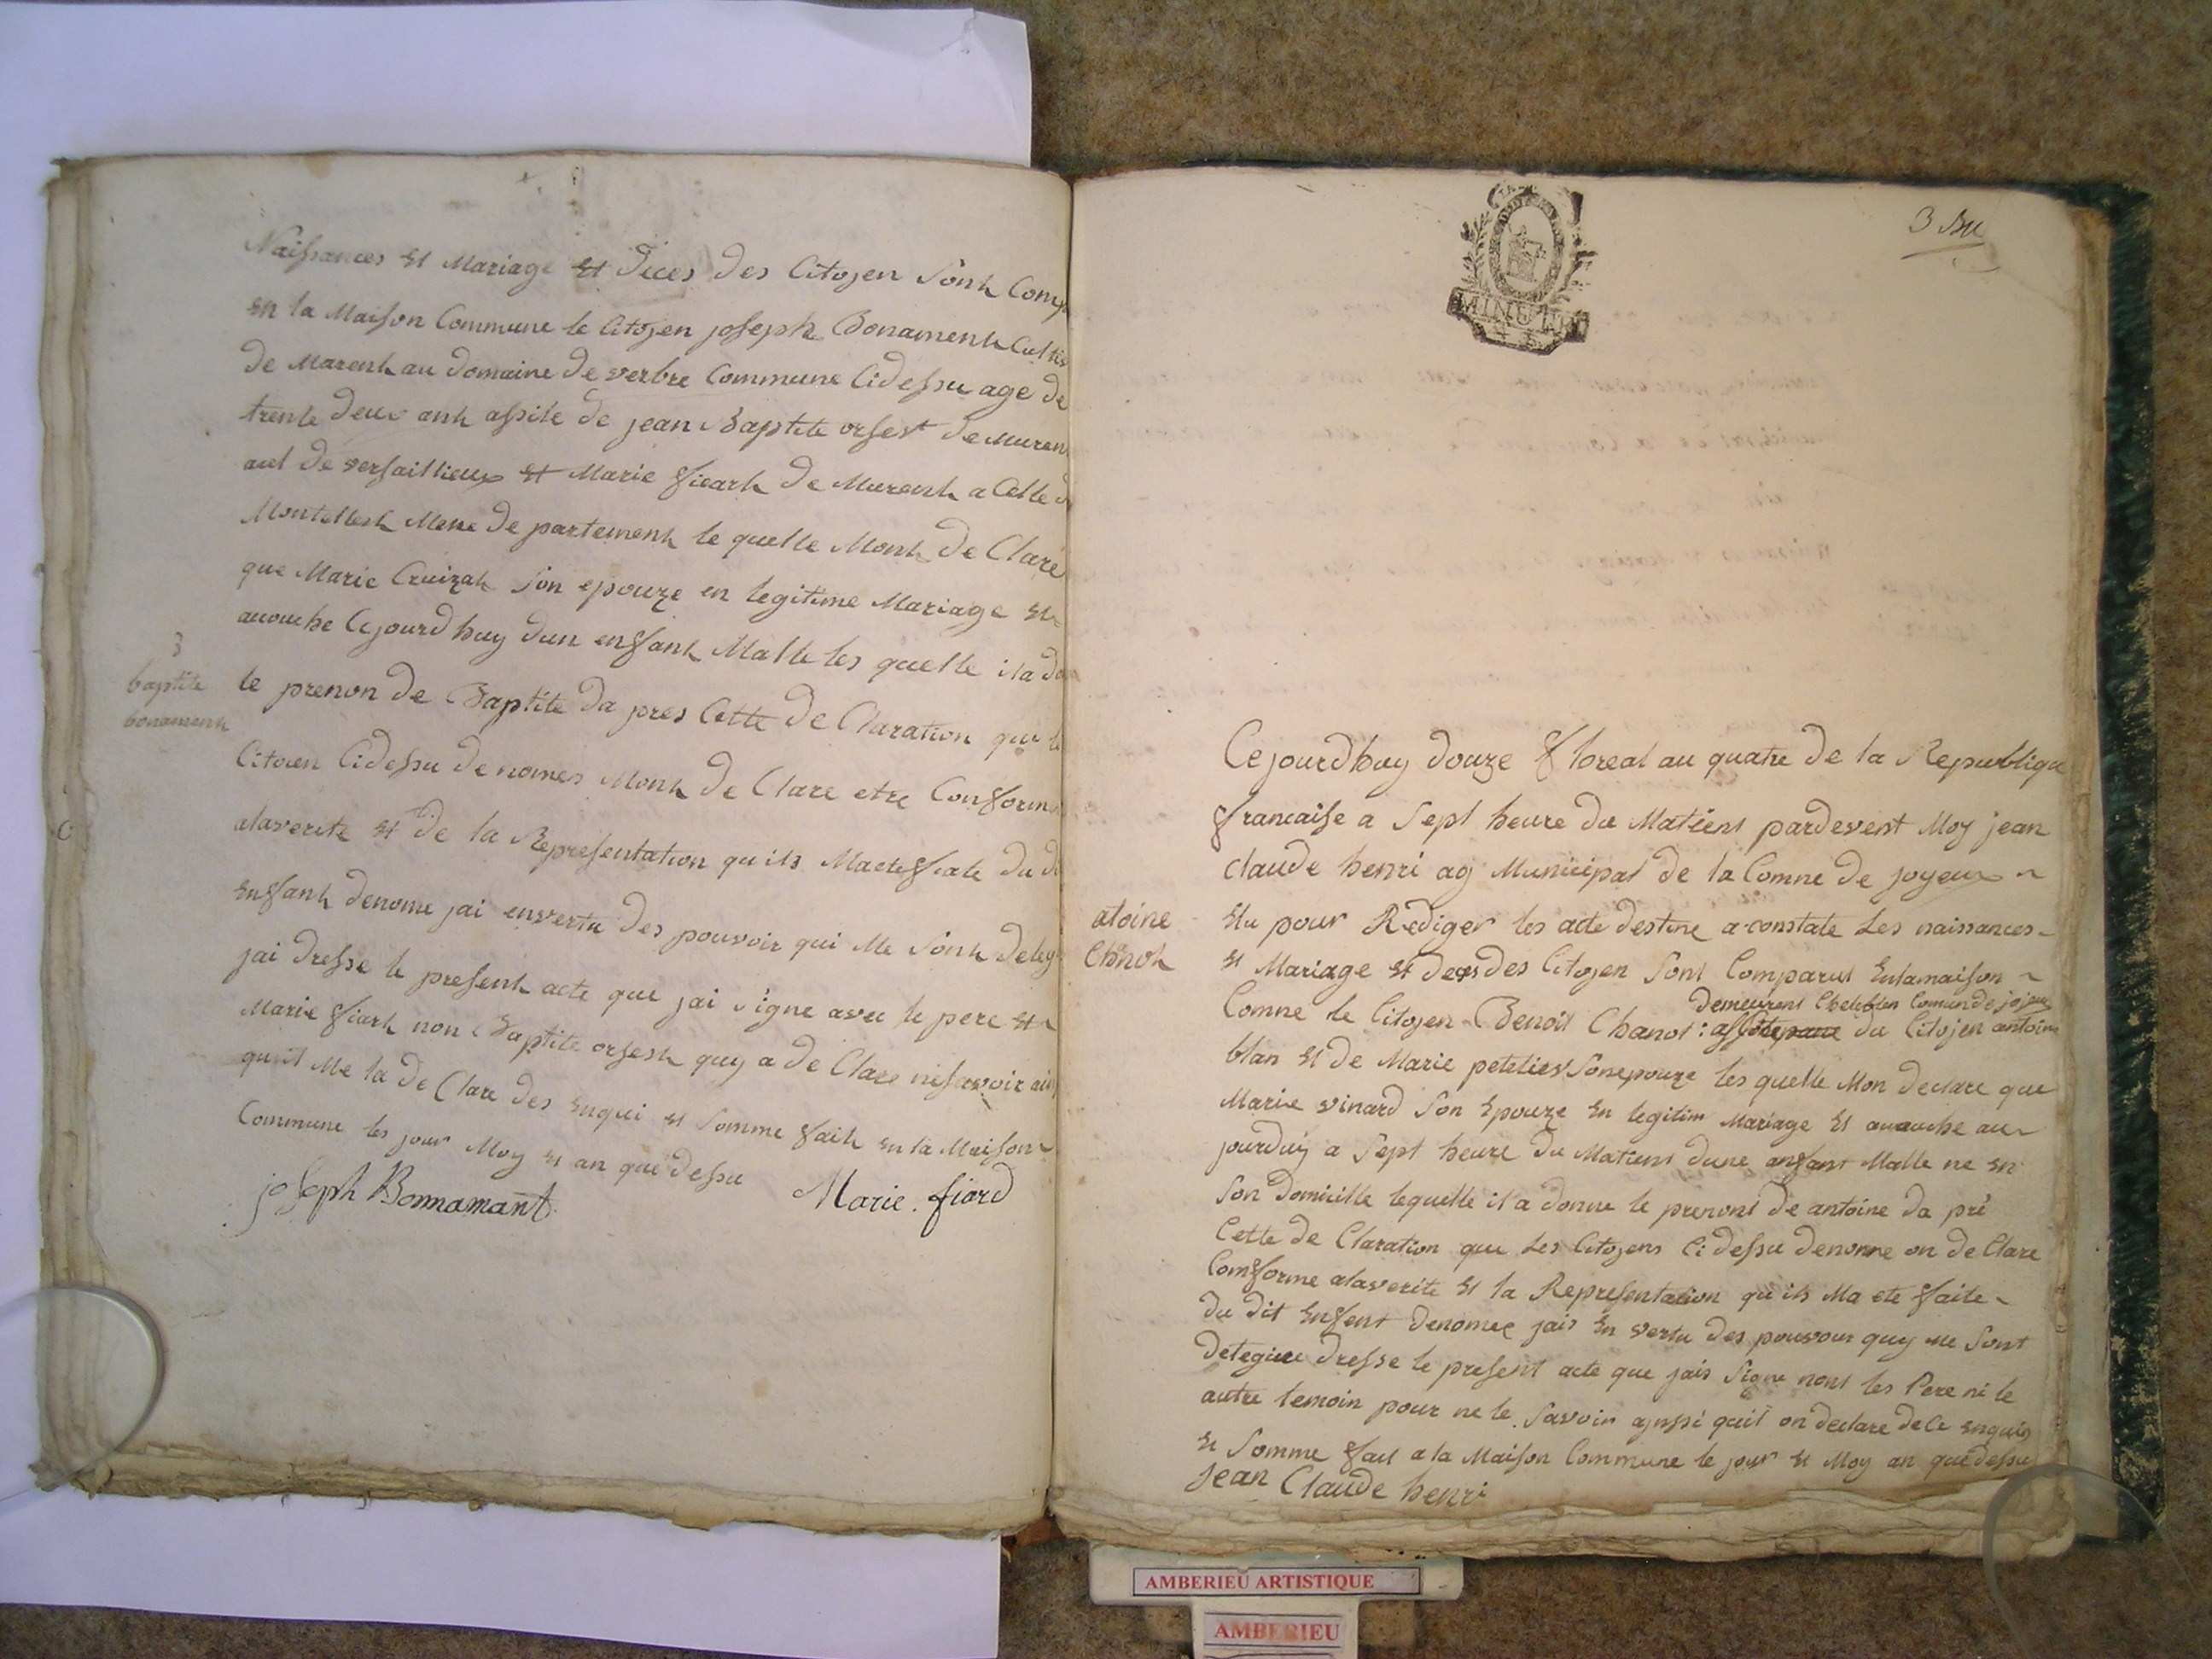 Naissances et Mariage et Deces Des Citoyen sont Comp
en la Maison Commune le Citoyen joseph Bonament Cultiv
De Marent au Domaine De verbre Commune Cidessu age De
trente Deux ant assite De jean Baptite orsest De Muren
aut De versaillieux et Marie fieart De Murent a Celle d
Montellest Meme De partement le quelle Mont De Clare
que Marie Cruizat son epouze en legitime Mariage et
acouche Cejourd huy dun enfant Malle les quelle ila do
3
baptite
bonament
le prenon De Baptite Da pres Cette De Claration que le
Citoien Cidessu De nomes Mont De Clare etre Conforme
alaverite et De la Representation quils Maeteffaite Du d
enfant denome jai envertu Des pouvoir qui Me sont deleg
jai Dresse le present acte que jai signe avec le pere et
Marie fiart non Baptite orsest quy a de Clare nesavoir ain
quil Me la De Clare Des enqui et somme fait en la Maison
Commune les jour Moy et an que Dessu
joseph Bonnamant Marie fiard
3 Bu
MINUTE
Cejourdhuy Douze floreal an quatre De la Republique
francaise a Sept heure du Matient pardevent Moy jean
claude henri ag Municipal De la Comne De joyeux
atoine
Chanot
elu pour Rediger les acte destine a constate Les naissances
et Mariage et deces des Citoyen sont Comparut enlamaison
demeurent Comunde joyeux
Comne le Citoyen Benoit Chanot : du Citoyen antoine
blan et de Marie petetier sonepouze les quelle Mon declare que
Marie vinard son Epouze en legitim Mariage et acouche au
jourduy a Sept heure Du Matient dune anfant Malle ne en
son Domicille lequelle il a donne le prenont De antoine Da pré
Cette de Claration que Les Citoyens Ci dessu denonne on de Clare
Comforme alaverite et la Representation quils Ma ete ffaite
Du dit enfent denomee jais en vertu Des pouvour quy me sont
Deteguee Dresse le present acte que jais Signe nont les Pere ni le
autre temoin pour ne le savoir aynssi quil on declare dele enquis
et Somme fait a la Maison Commune le jour et Moy an quedessu
Jean Claude henri
AMBERIEU ARTISTIQUE
AMBERIEU